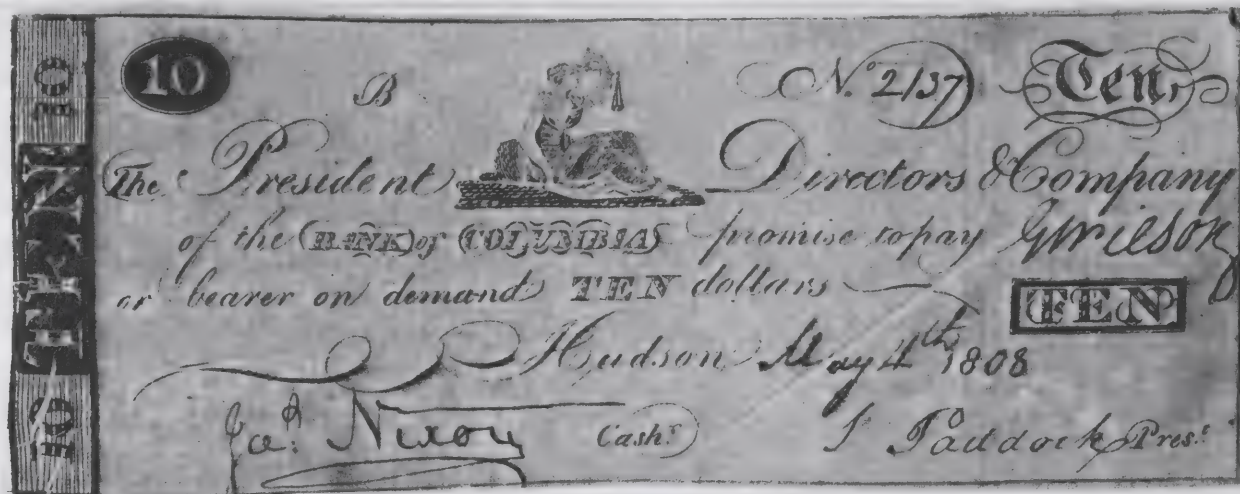 10 B No. 2137 Ten
The President Directors & Company
of the BANK of COLUMBIA promise to pay G Wilson
or bearer on demand TEN dollars TEN
Hudson May 4th 1808
Jas. Nixon Cashr. Paddock Prest.
10 TEN 10